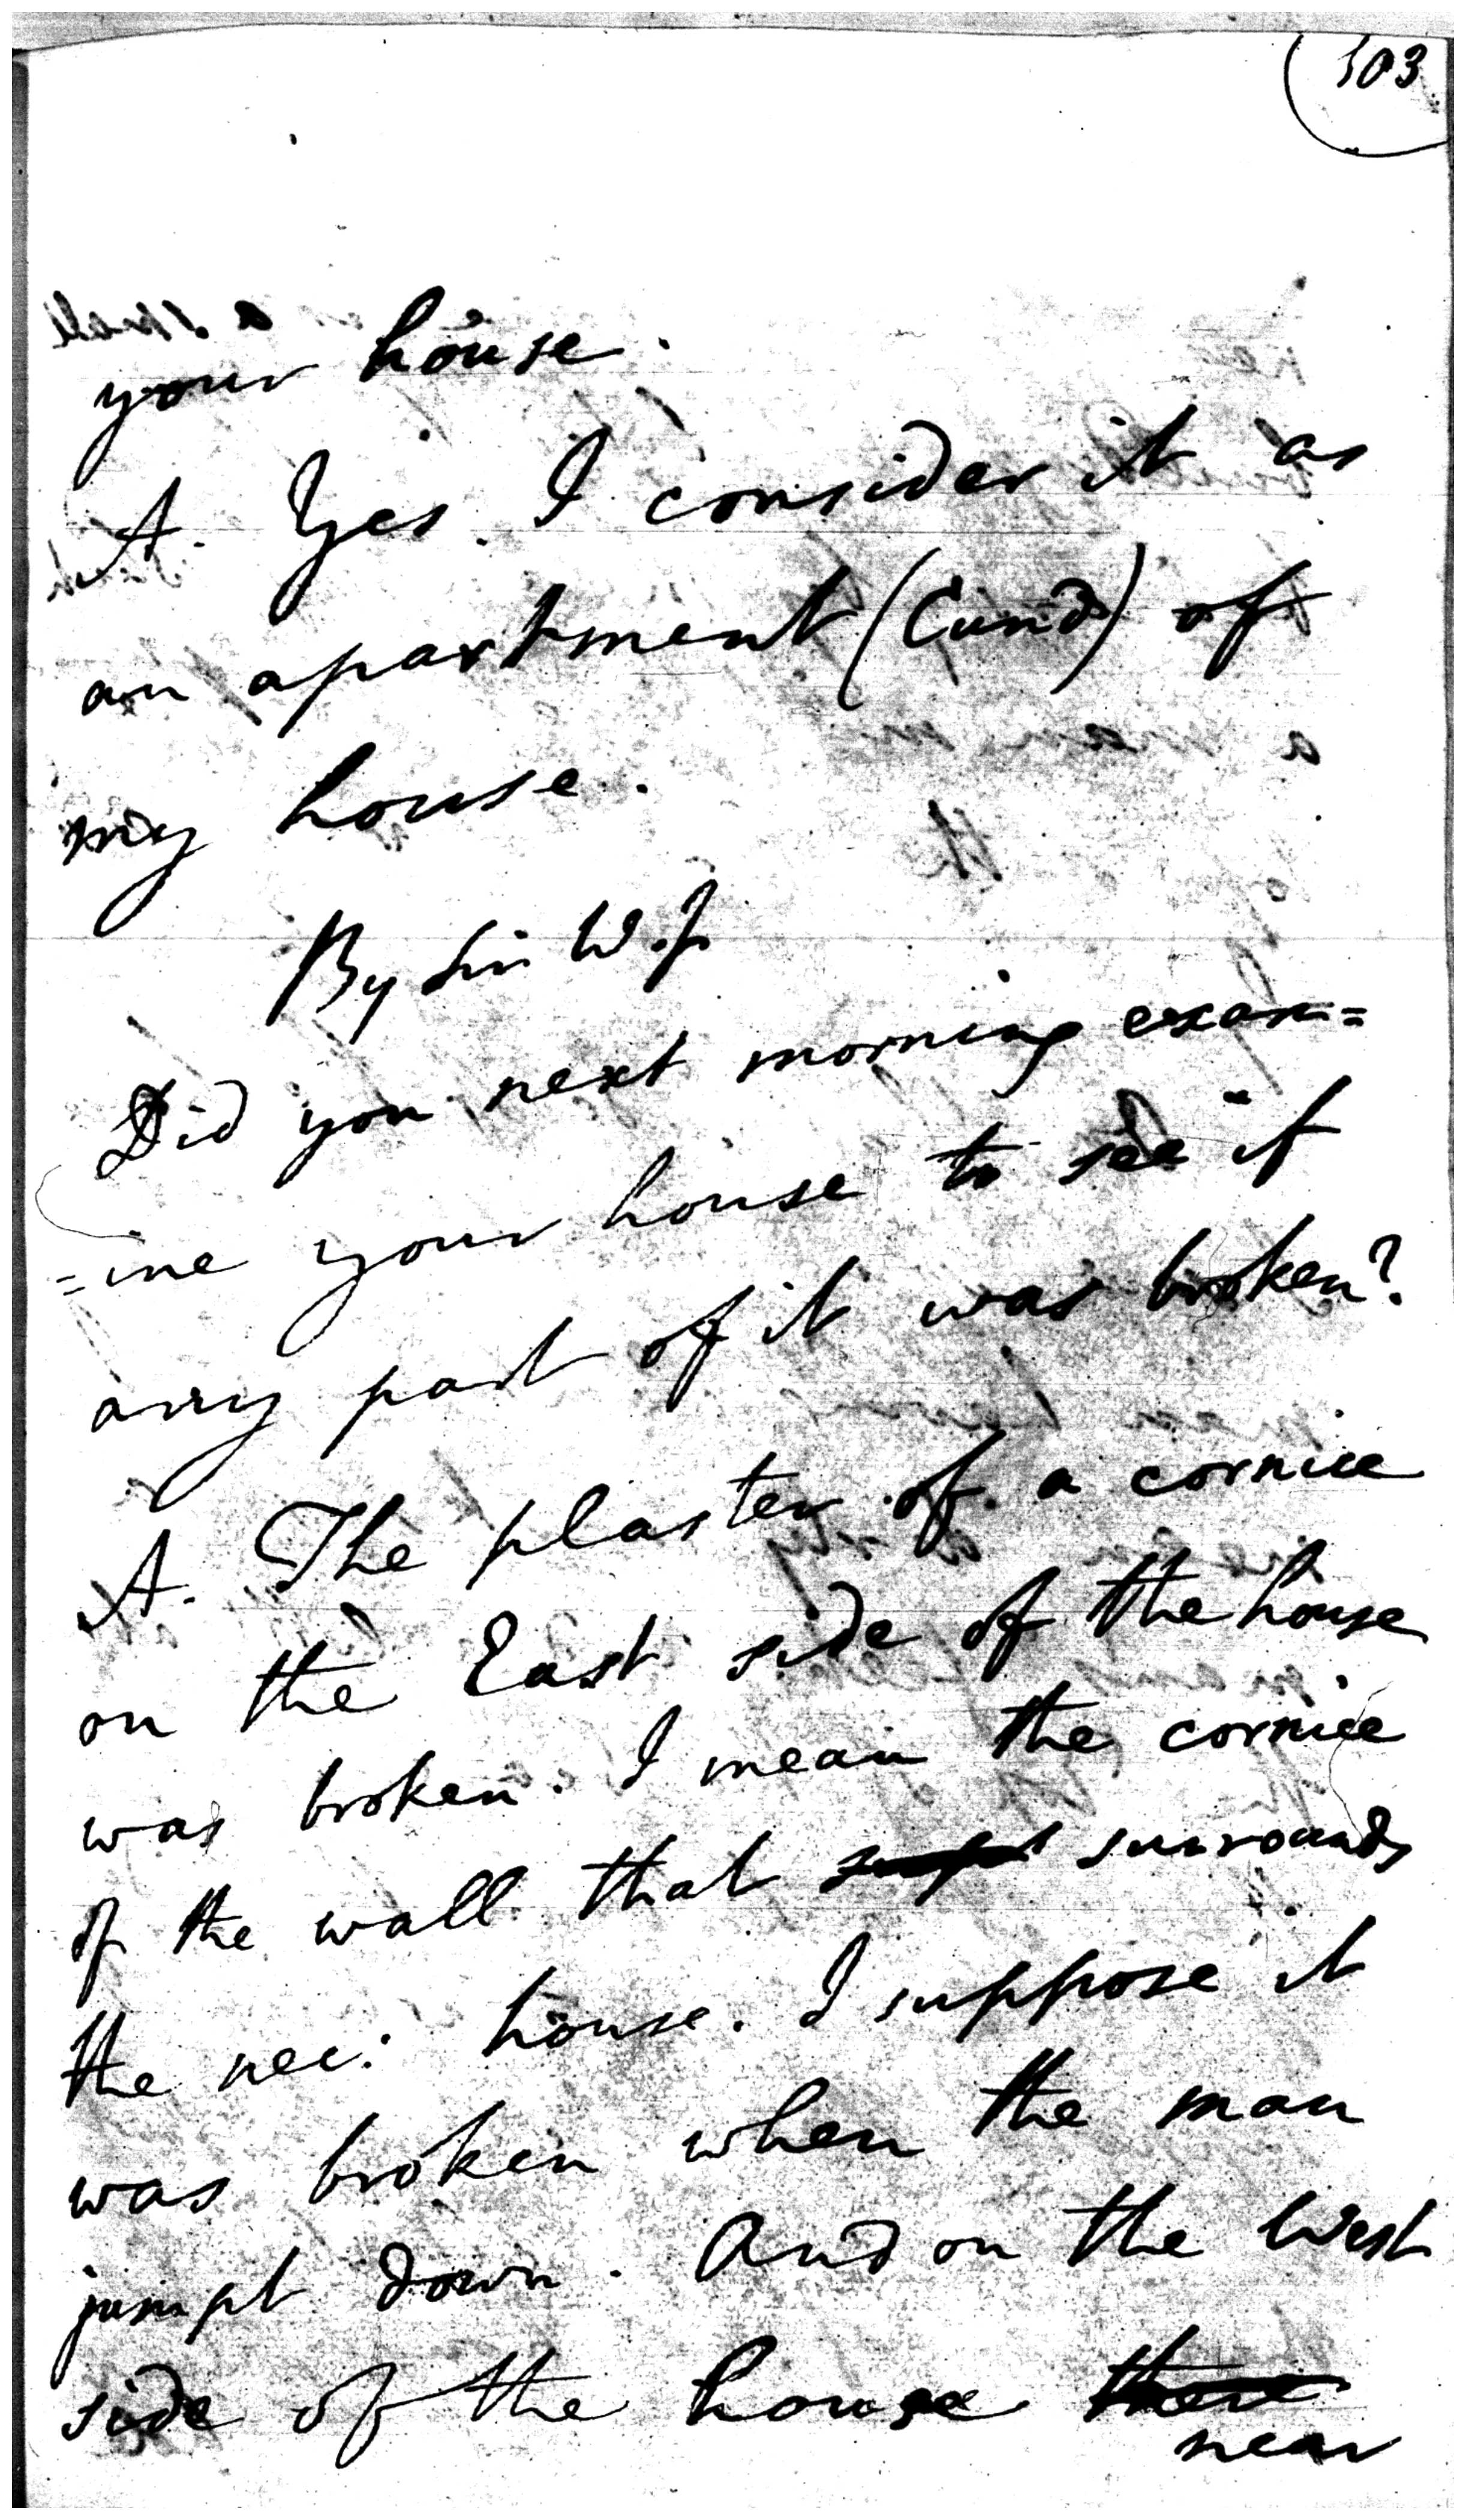 103
your house.
A. Yes. I consider it as
an apartment (Cund) of
my house.
By Sir W. J.
Did you next morning exam=
=ine your house to see if
any part of it was broken?
A. The plaster of a cornice
on the East side of the house
was broken. I mean the cornice
of the wall that surrounds
the house. I suppose it
was broken when the man
jumpt down. And on the West
side of the house there
near